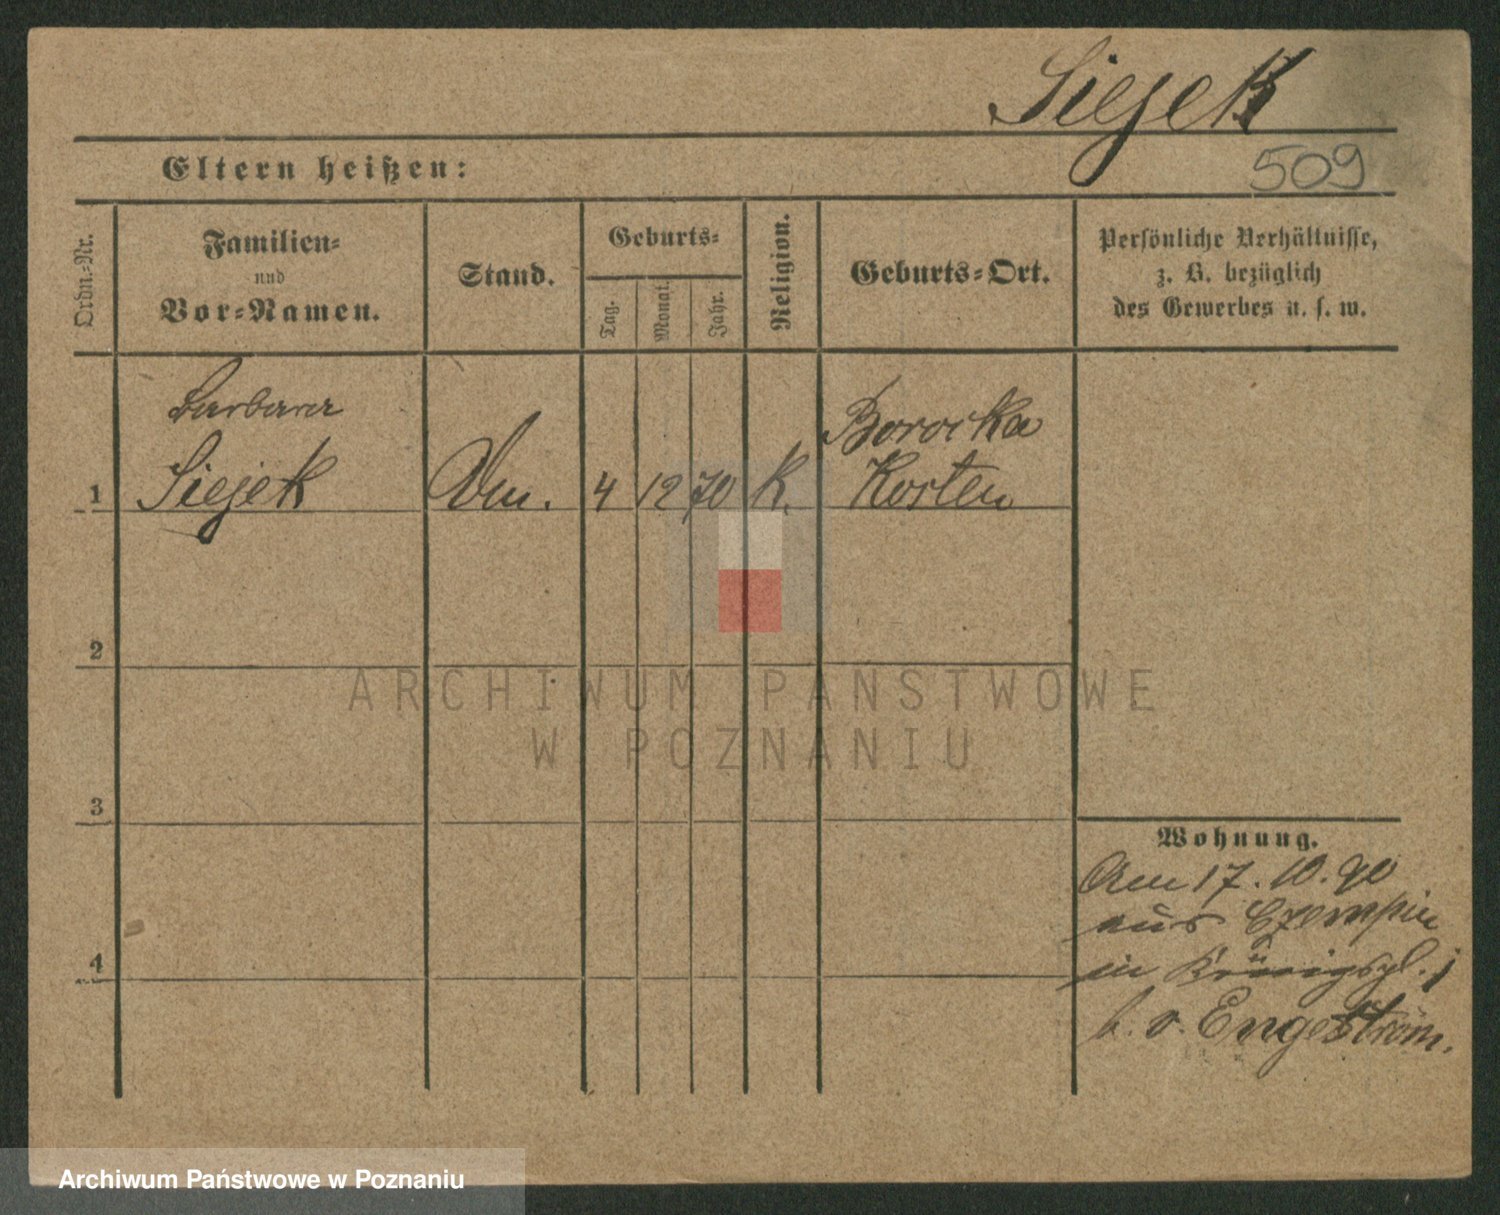 Siejek
509
Eltern heißen:
Ordn.-Nr.
Familien-
und
Vor-Namen.
Stand.
Geburts-
Tag.
Monat.
Jahr.
Religion.
Geburts-Ort.
Persönliche Verhältnisse,
z. B. bezüglich
des Gewerbes u. s. w.
Barbara
1 Siejek 4 12 70 K.
Borowka
Kosten
2
3
4
Wohnung.
Am 17. 10. 90
aus Czempin
in Königspl. 1
b. v. Engeström.
ARCHIWUM PAŃSTWOWE
W POZNANIU
Archiwum Państwowe w Poznaniu